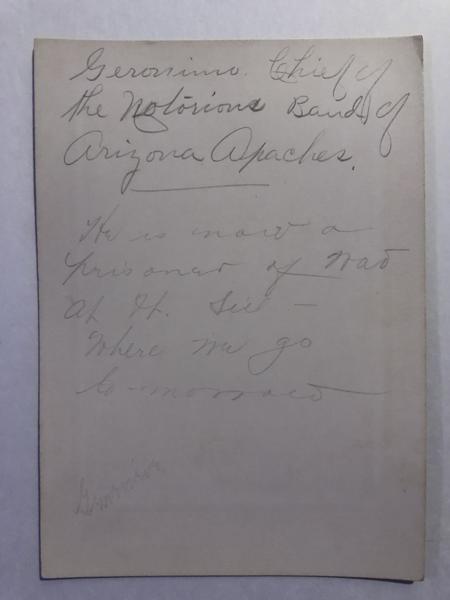 Geronimo. Chief of
the Notorious Band of
Arizona Apaches.
He is now a
prisoner of War
At Ft. Sill –
Where we go
to-morrow
Geronimo